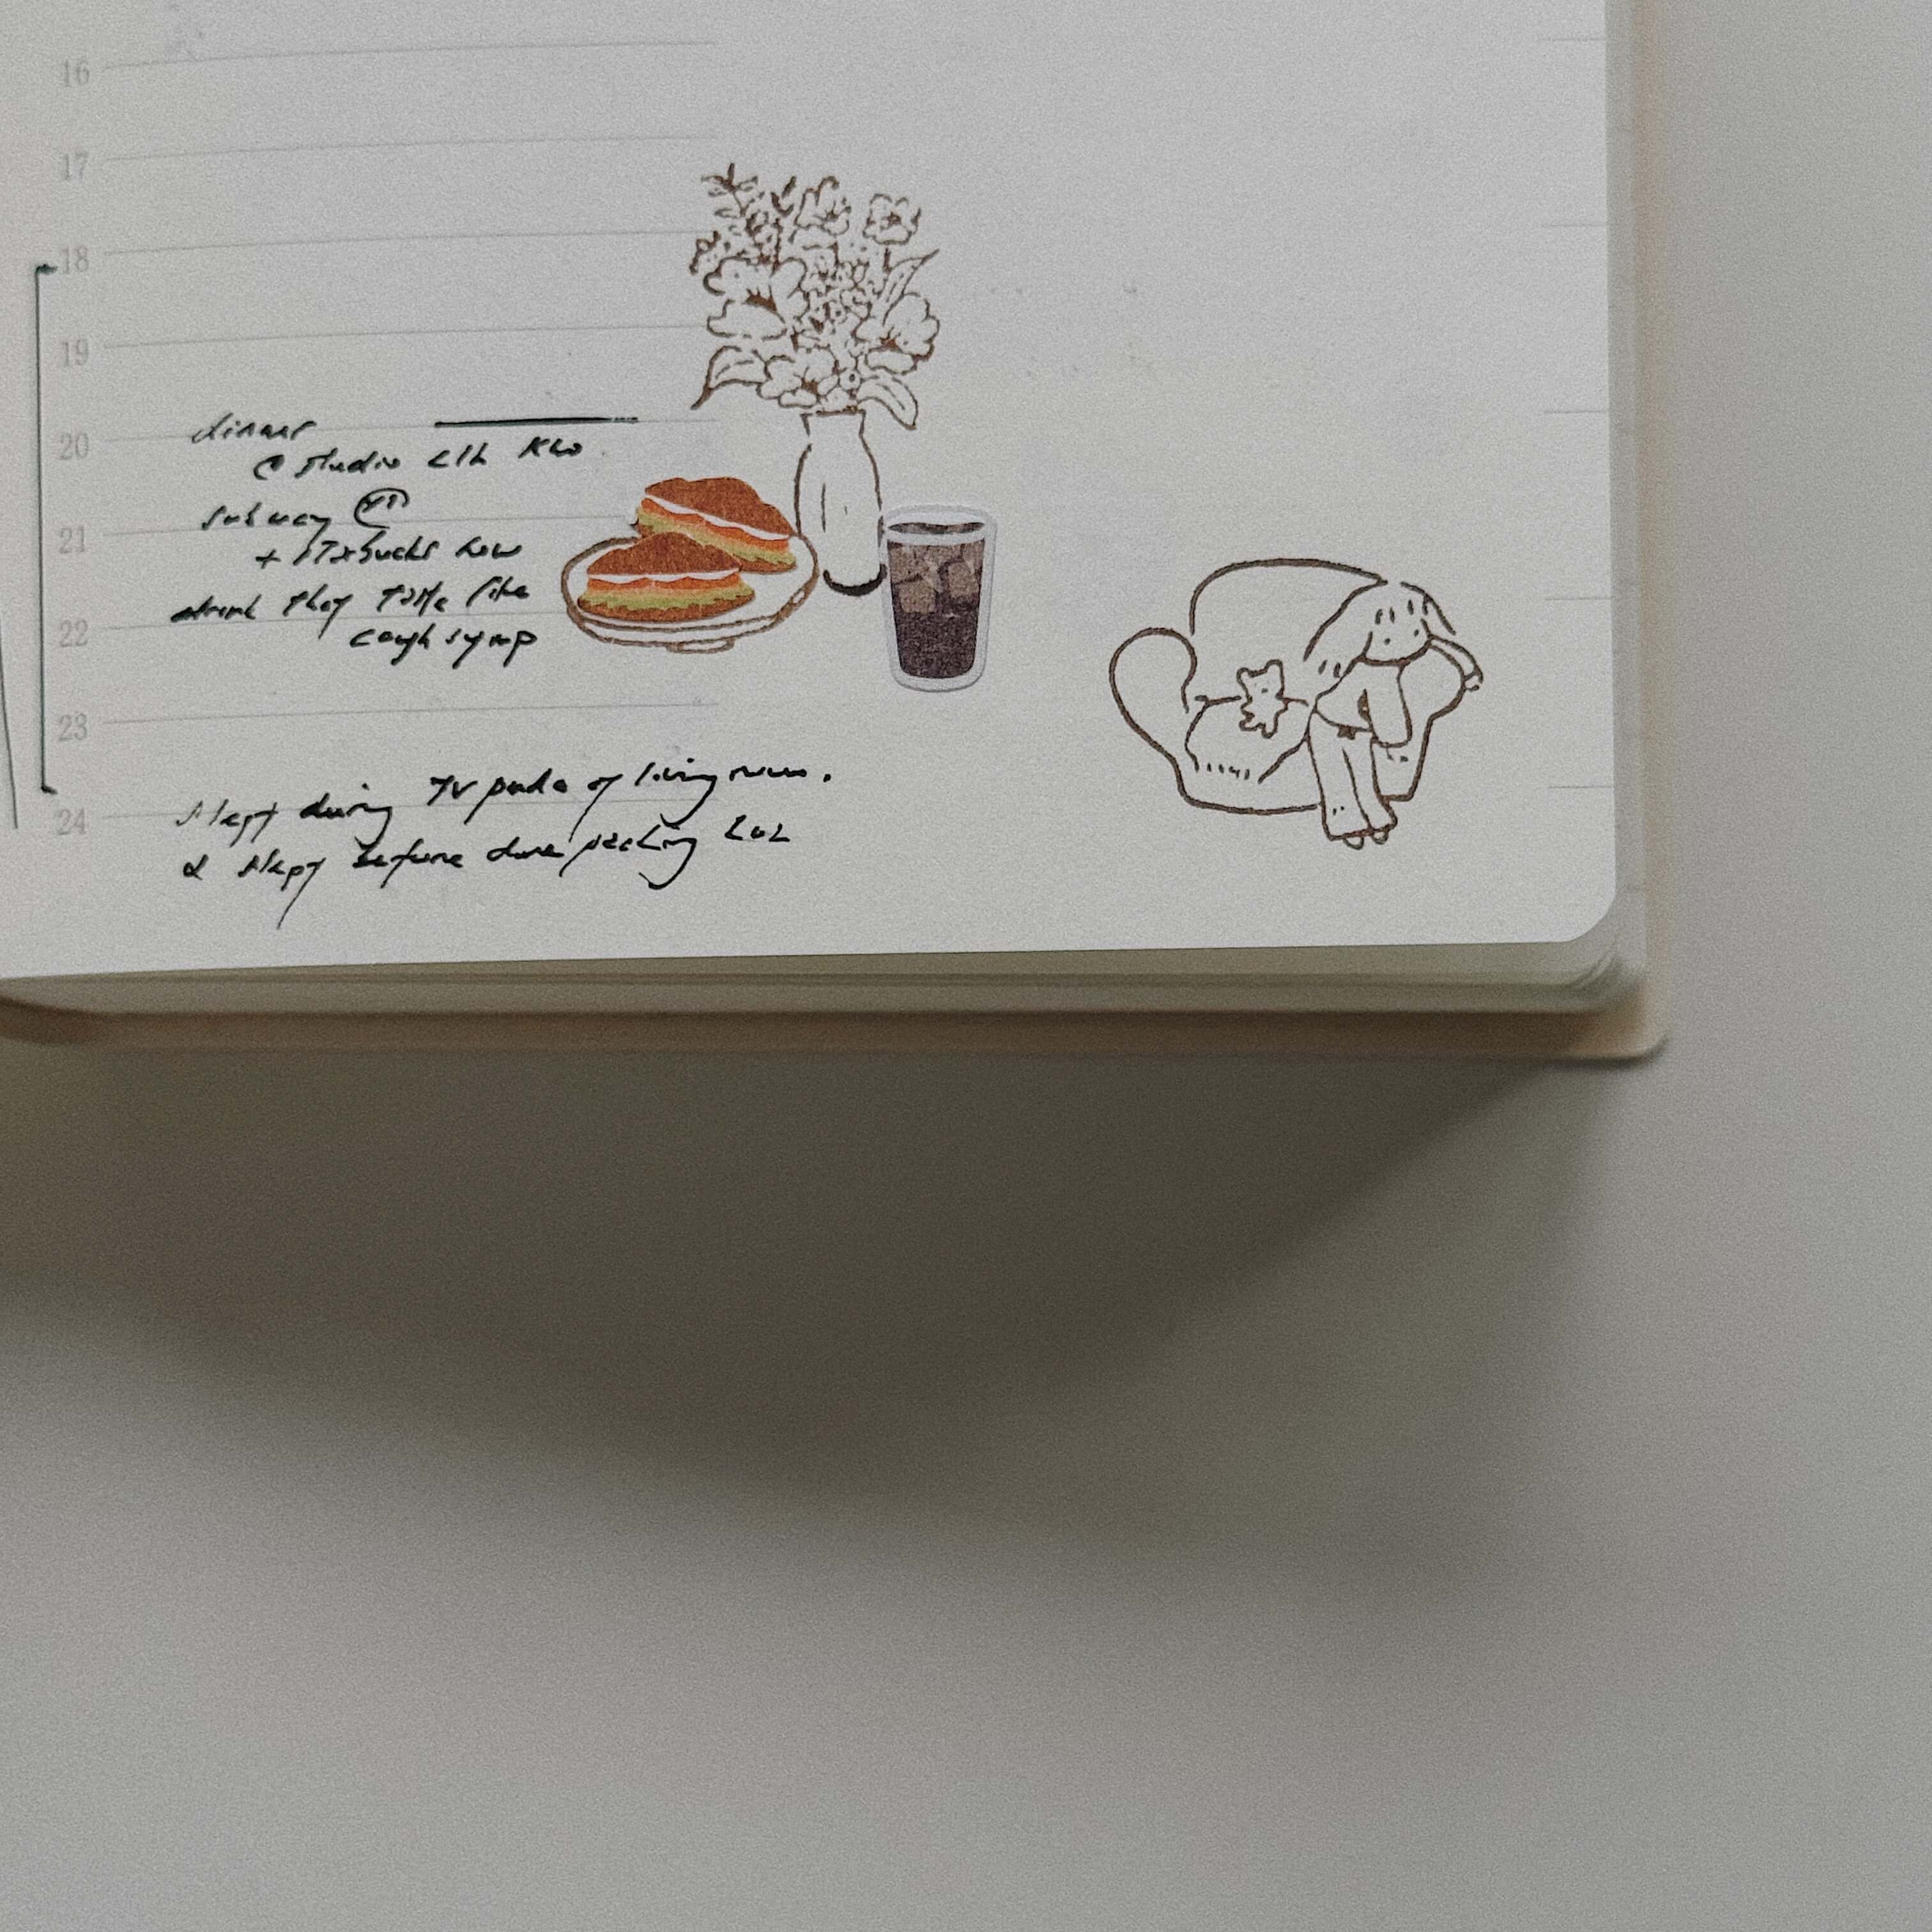 16
17
18
19
dinner
20
@ studio c/h
subway
21
+ starbucks new
drink they taste like
22
cough syrup
23
slept during TV of living room.
24
& slept before done packing LOL